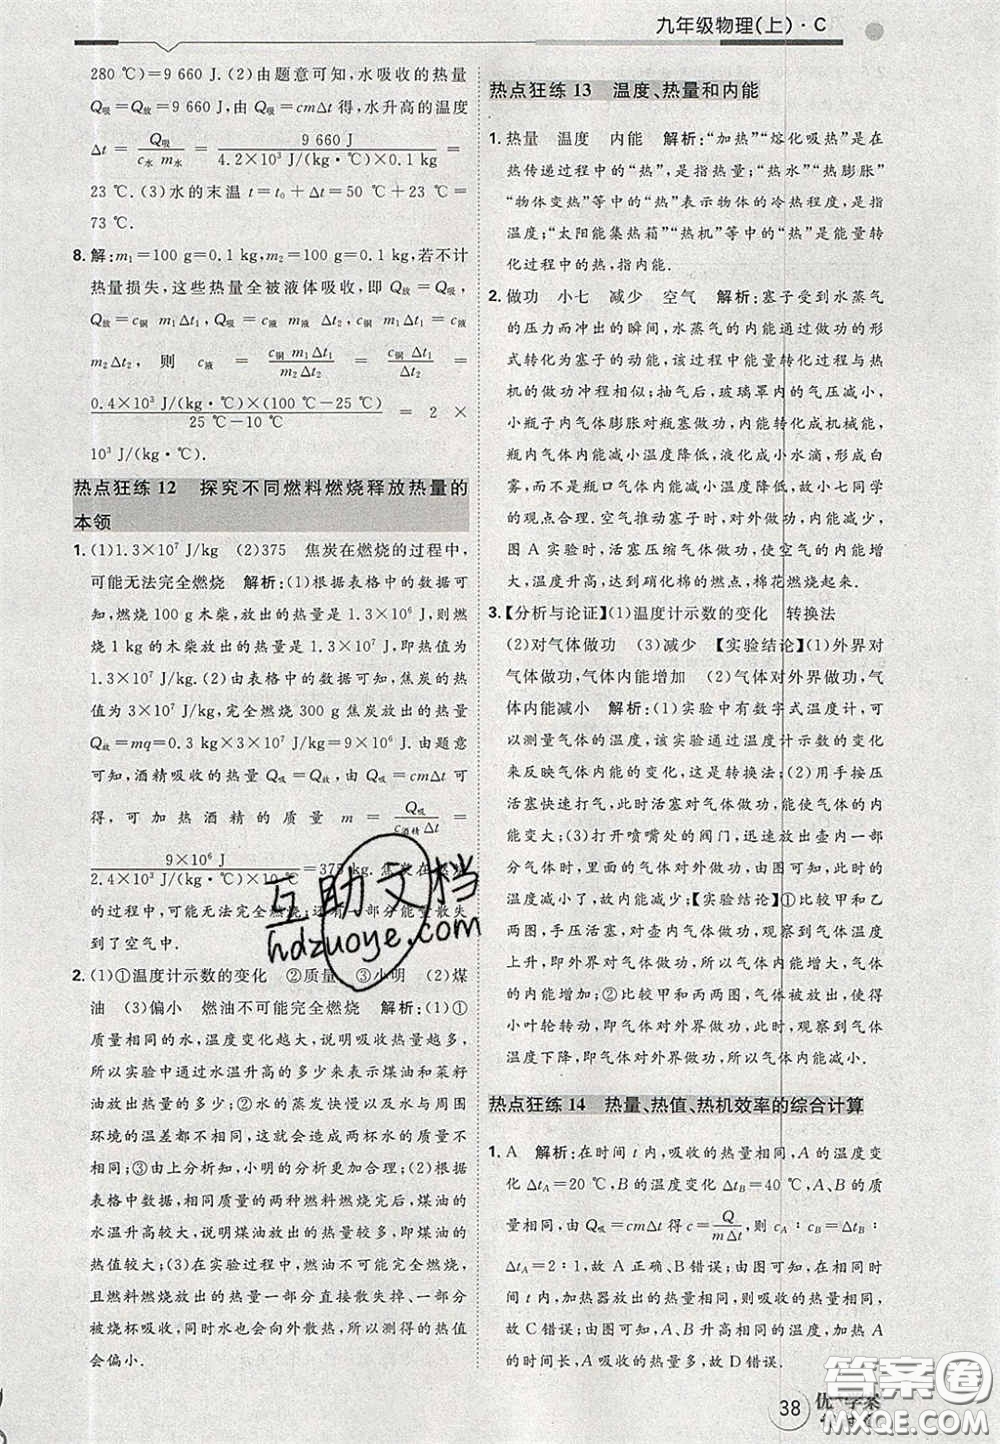 九年级物理(上)·C
280 ℃)=9 660 J. (2)由题意可知,水吸收的热量
Q吸=Q放=9 660 J. 由 Q吸=cmΔt 得,水升高的温度
Δt = Q吸/(c水 m水) = 9 660 J/(4.2×10³ J/(kg·℃)×0.1 kg) =
23 ℃. (3)水的末温 t=t₀+Δt=50 ℃+23 ℃=
73 ℃.
8. 解:m₁=100 g=0.1 kg,m₂=100 g=0.1 kg,若不计
热量损失,这些热量全被液体吸收,即 Q放=Q吸,
Q放=c铜 m₁Δt₁,Q吸=c液 m₂Δt₂,c铜 m₁Δt₁=c液
m₂Δt₂, 则 c液 = c铜 m₁Δt₁/(m₂Δt₂) = c铜Δt₁/Δt₂ =
0.4×10³ J/(kg·℃)×(100 ℃-25 ℃)/(25 ℃-10 ℃) = 2 ×
10³ J/(kg·℃).
热点狂练 12 探究不同燃料燃烧释放热量的
本领
1. (1)1.3×10⁷ J/kg (2)375 焦炭在燃烧的过程中,
可能无法完全燃烧 解析:(1)根据表格中的数据可
知,燃烧 100 g 木柴,放出的热量是 1.3×10⁶ J,则燃
烧 1 kg 的木柴放出的热量是 1.3×10⁷ J,故热值为
1.3×10⁷ J/kg. (2)由表格中的数据可知,焦炭的热
值为 3×10⁷ J/kg,完全燃烧 300 g 焦炭放出的热量
Q放=mq=0.3 kg×3×10⁷ J/kg=9×10⁶ J. 由题意
可知,酒精吸收的热量 Q吸=Q放,由 Q吸=cmΔt 可
得,可加热酒精的质量 m = Q吸/(c酒精 Δt) =
9×10⁶ J/(2.4×10³ J/(kg·℃)×10 ℃)=375 kg. 焦炭在燃
烧的过程中,可能无法完全燃烧,还有一部分能量散失
到了空气中.
2. (1)①温度计示数的变化 ②质量 ③小明 (2)煤
油 (3)偏小 燃油不可能完全燃烧 解析:(1)①
质量相同的水,温度变化越大,说明吸收热量越多,
所以实验中通过水温升高的多少表示煤油和菜籽
油放出热量的多少;②水的蒸发快慢与水与周围
环境的温差有关,这样会造成两杯水的质量不相
同;③由上分析知,小明的分析更加合理;(2)根据
表格中数据,相同质量的两种燃料燃烧完后,煤油的
水温升高较大,说明煤油放出热量较多,即煤油的热
值较大;(3)在实验过程中,燃油不可能完全燃烧,
且燃料燃烧放出的热量一部分直接散失掉、一部分
被烧杯吸收,同时水也会向外散热,所以测得的热值
会偏小.
热点狂练 13 温度、热量和内能
1. 热量 温度 内能 解析:“加热”“熔化吸热”是在
热传递过程中的“热”,是指热量;“热水”“热膨胀”
“物体变热”等中的“热”表示物体的冷热程度,是指
温度;“太阳能集热箱”“热机”等中的“热”是能量转
化过程中的热,指内能.
2. 做功 小七 减少 空气 解析:塞子受到水蒸气
的压力而冲出的瞬间,水蒸气的内能通过做功的形
式转化为塞子的动能,该过程中能量转化过程与热
机的做功冲程相似;抽气后,玻璃罩内的气压减小,
小瓶子内气体膨胀对瓶塞做功,内能转化成机械能,
水蒸气的内能减少温度降低,液化成小水滴,形成白
雾,而不是瓶口气体内能增大温度降低,故小七同学
的观点合理. 空气推动塞子时,对外做功,内能减少,
图 A 实验时,活塞压缩气体做功,使空气的内能增
大,温度升高,达到硝化棉的燃点,棉花燃烧起来.
3. 【分析与论证】(1)温度计示数的变化 转换法
(2)对气体做功 (3)减少 【实验结论】(1)外界对
气体做功,气体内能增加 (2)气体对外界做功,气体
内能减小 解析:(1)实验中有数字式温度计,可
以测量气体的温度,该实验通过温度计示数的变化
来反映气体内能的变化,这是转换法;(2)用手按压
活塞快速打气,此时活塞对气体做功,气体的内能
变大;(3)打开喷嘴处的阀门,迅速放出壶内一部
分气体时,里面的气体对外做功,此时气体对外做功,
温度减小,内能减少. 【实验结论】①比较甲和乙
两图,外界对气体做功,对壶内气体,观察到气体温度
上升,即外界对气体做功时,气体温度升高,所以气体
内能增加;②比较甲和丙两图,气体被放出,使得
小叶轮转动,即气体对外界做功,此时,观察到气体
温度下降,即气体对外界做功,所以气体内能减小.
热点狂练 14 热量、热值、热机效率的综合计算
1. A 解析:在时间 t 内,吸收的热量相同,A 的温度变
化 Δt_A=20 ℃,B 的温度变化 Δt_B=40 ℃,A、B 的质
量相同,由 Q吸=cmΔt 得 c=Q/(mΔt),则 c_A∶c_B=Δt_B∶
Δt_A=2∶1,故 A 正确、B 错误;由图可知,在时间 t
内,加热器放出的热量相同,则吸收的热量相同,
故 C 错误;由图可知,A、B 升高相同的温度,加热 A
的时间长,A 吸收的热量多,故 D 错误.
互助文档
hdzuoye.com
38
优+学案
答案圈
MXQE.COM